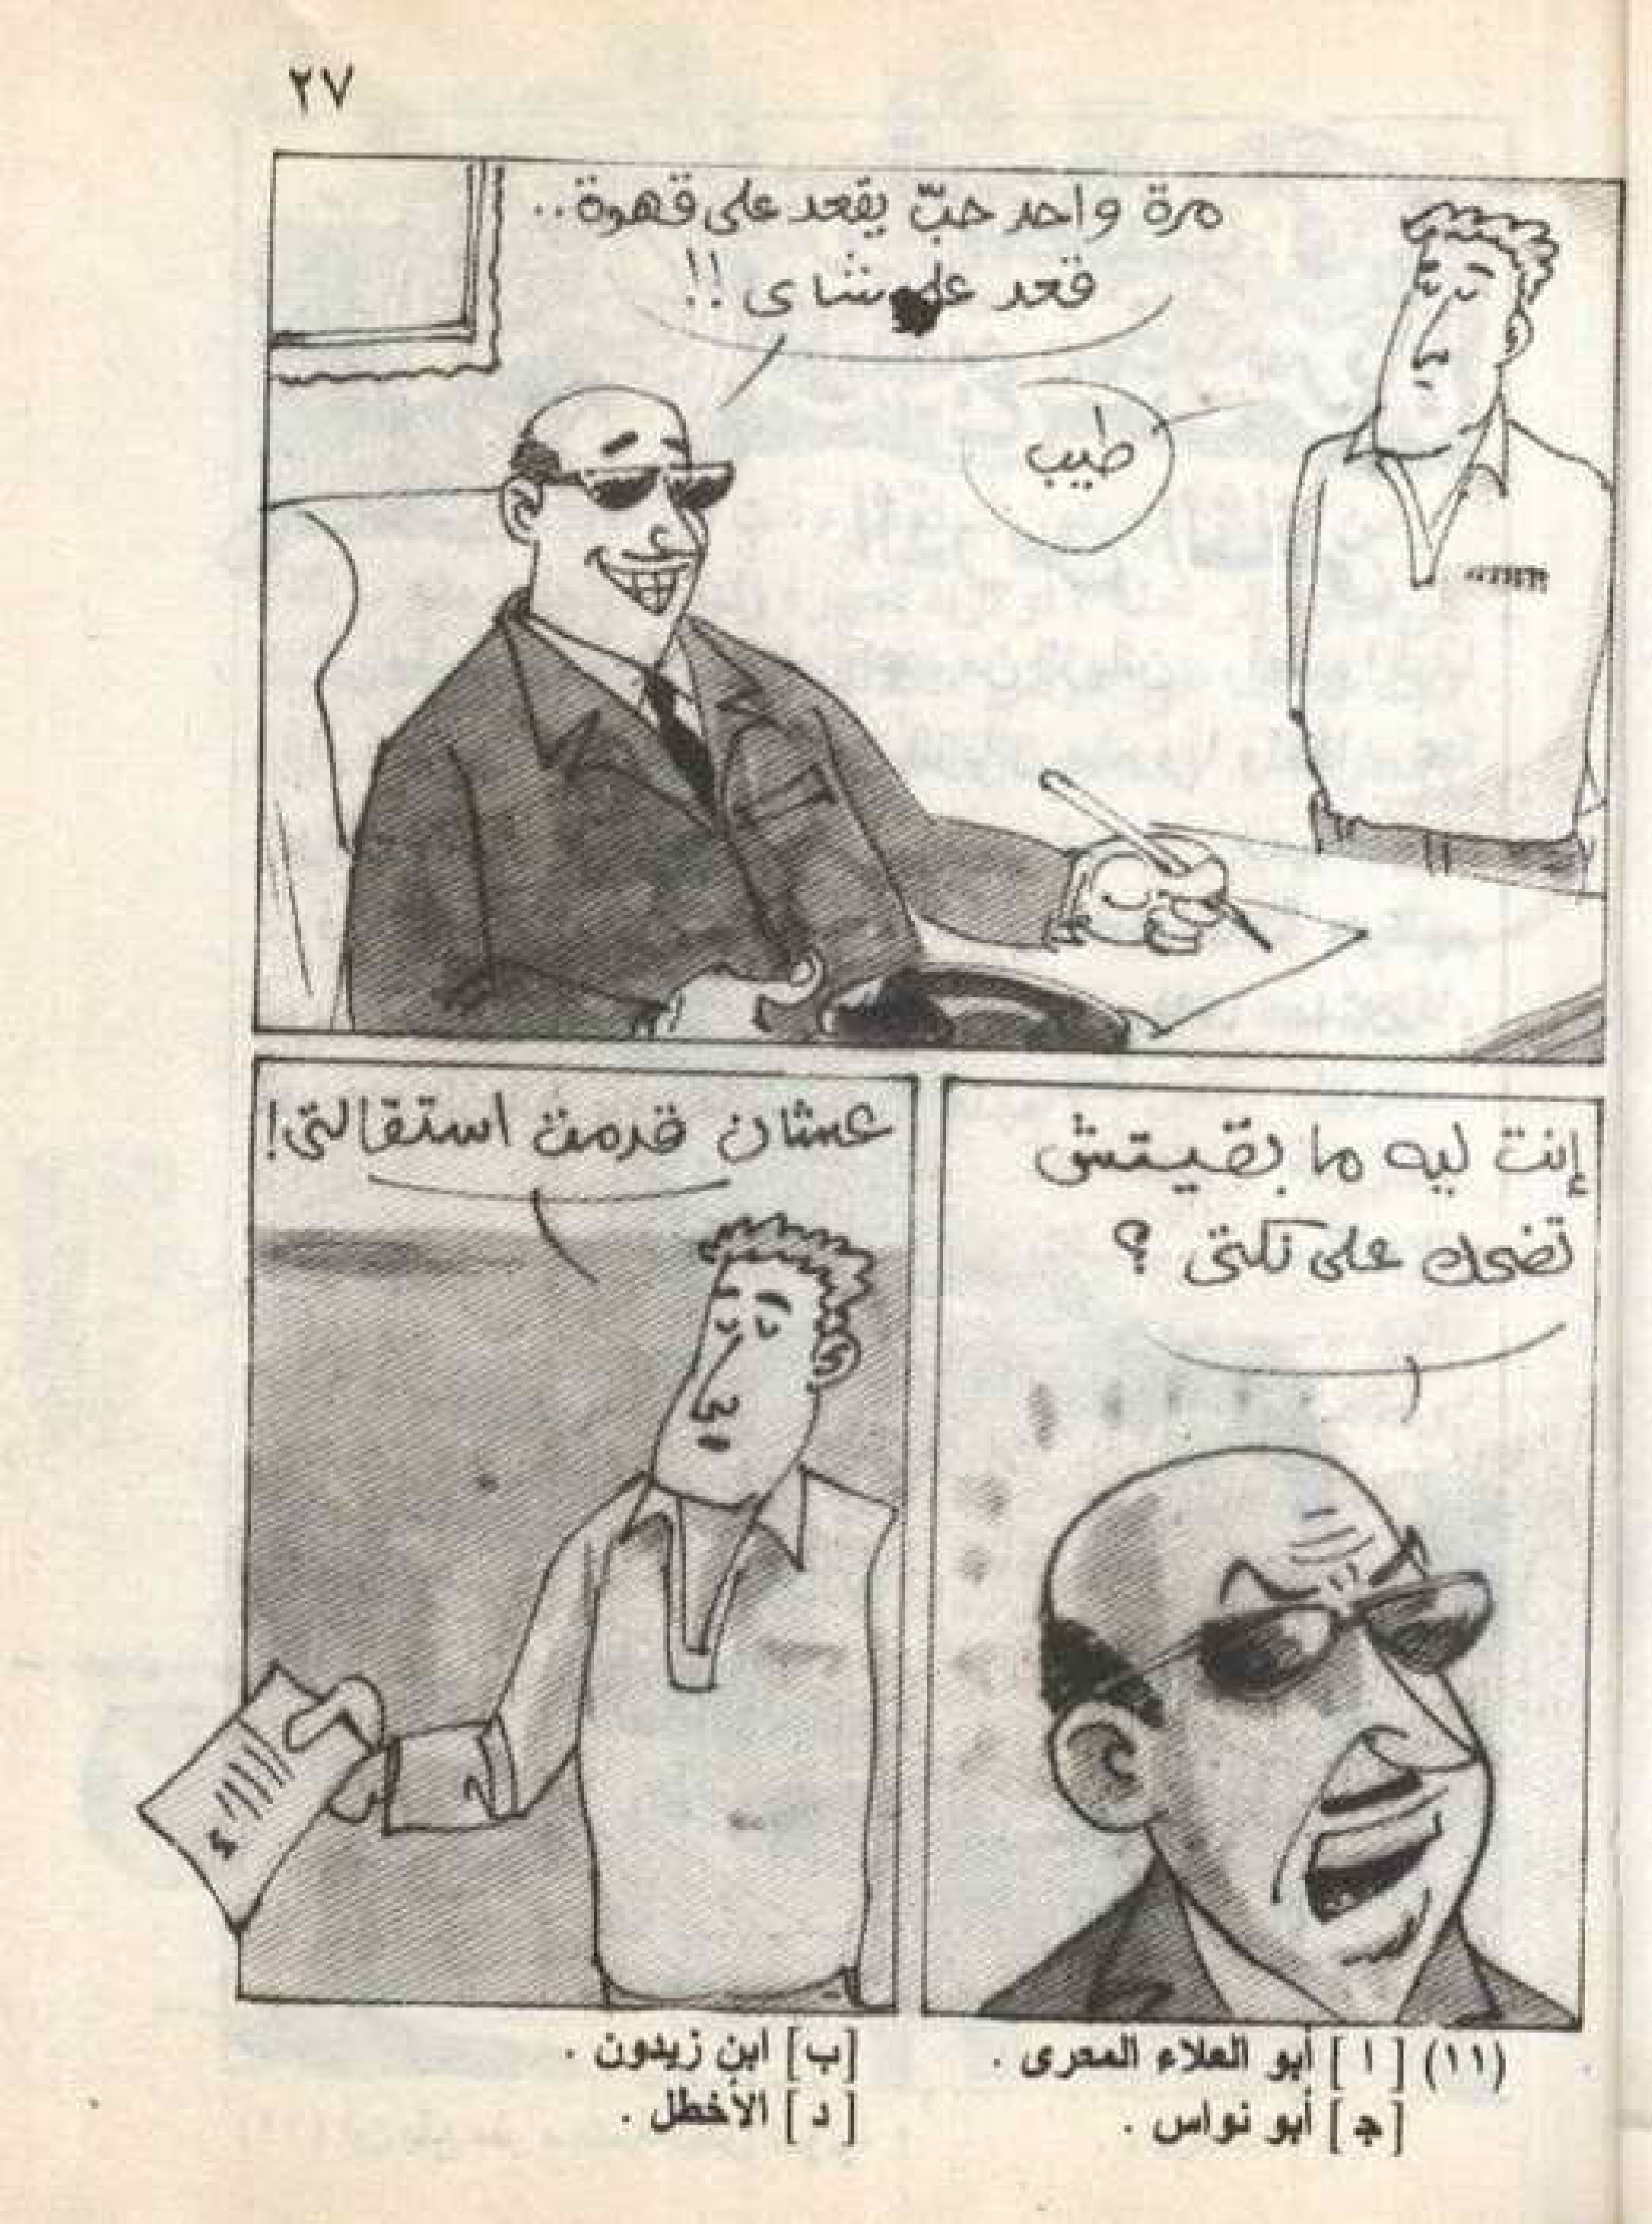 ٢٧
مرة واحد حبّ يقعد على قهوة..
قعد على شاى !!
طيب
إنت ليه ما بقيتش
تضحك على نكتى ؟
عشان قدمت استقالتى!
(١١) [ ا ] أبو العلاء المعرى . [ب] ابن زيدون .
[جـ] أبو نواس . [ د ] الأخطل .